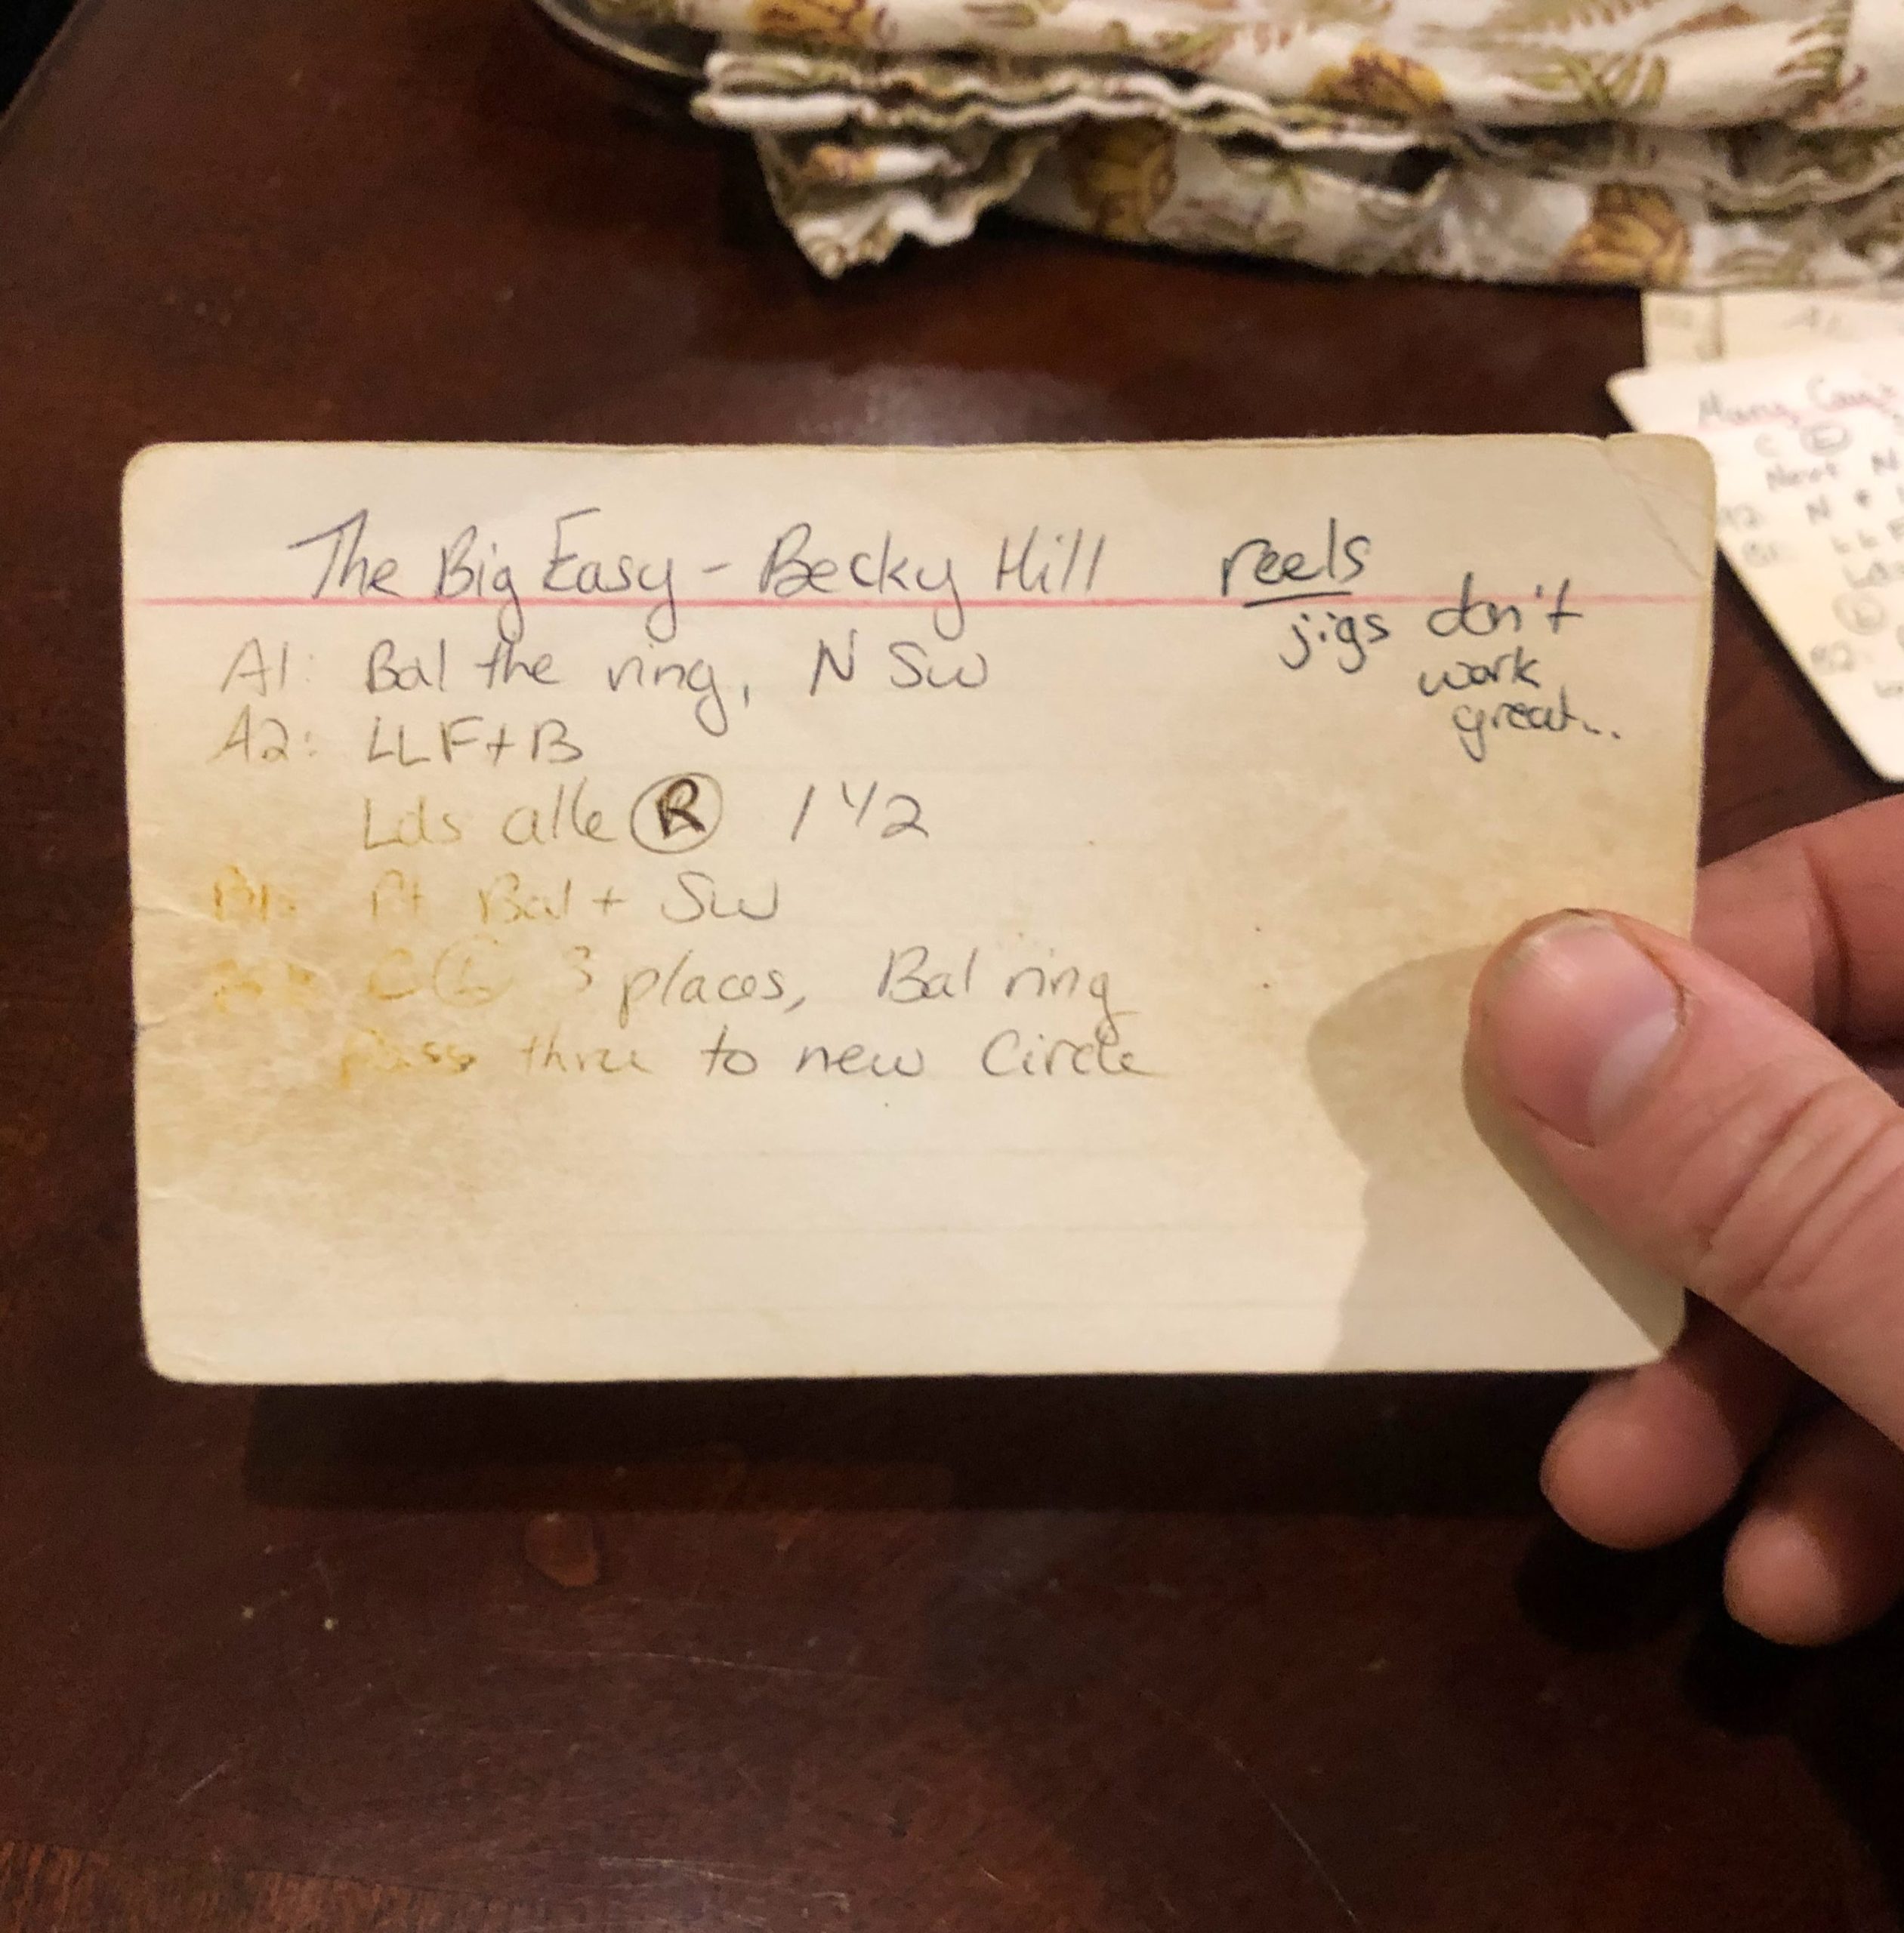 The Big Easy - Becky Hill reels
jigs don't
work
great...
A1: Bal the ring, N Sw
A2: LLF+B
Lds alle R 1 1/2
B1: Pt Bal + Sw
C L 3 places, Bal ring
pass thru to new Circle
A1
Many Cay's
C L
Next N
A2: N +
B1:
Lds
B2: